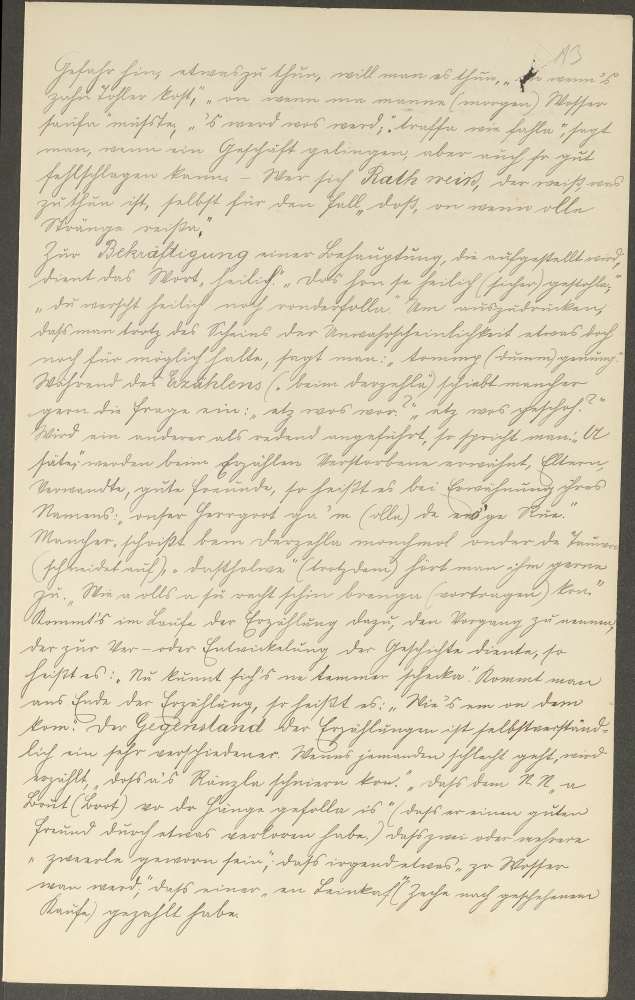 13
Gefahr hin, etwas zu thun, will man es thun, „ on wenn's
zahn Tohler kost," „ on wenn ma manne (morgen) Wosser
saufa müßte, „ 's werd wos werd," „ traffa wie fahla", sagt
man, wenn ein Geschäft gelingen, aber auch so gut
fehlschlagen kann. - Wer sich Rath weiß, der weiß was
zu thun ist, selbst für den Fall, doß, on wenn olle
Stränge reißa."
Zur Bekräftigung einer Behauptung, die aufgestellt wird,
dient das Wort „heilich" „ Dos hon se heilich (sicher) gestohla,"
„ du werscht heilich noch ronderfolla." Um auszudrücken,
daß man trotz des Scheins der Unwahrscheinlichkeit etwas doch
noch für möglich halte, sagt man: „ (dumm) genung."
Während des Erzählens („ beim Derzehla") schiebt mancher
gern die Frage ein: „ etz wos wor?" „ etz wos geschoh?"
Wird ein anderer als redend angeführt, so spricht man: „ A
säte," werden beim Erzählen Verstorbene erwähnt, Eltern,
Verwandte, gute Freunde, so heißt es bei Erwähnung ihres
Namens: „ onser Herrgoot ga 'm (olla) de ew'ge Rue."
Mancher „ schneißt beim Derzehla monchmol onder de Tauwa
(schneidet auf), „ dastholwe" (trotzdem) hört man ihm gerne
zu. „ Wie a olls a su racht schin brenga (vortragen) kon."
Kommt's im Laufe der Erzählung dazu, den Vorgang zu nennen,
der zur Ver- oder Entwickelung der Geschichte diente, so
heißt es: „ Nu kunnt sich's ne temmer schecka." Kommt man
ans Ende der Erzählung, so heißt es: „ Wie's em on dem
kom." Der Gegenstand der Erzählungen ist selbstverständ-
lich ein sehr verschiedener. Wenns jemanden schlecht geht, wird
erzählt „ doß a's Ränzla schniern kon." „ daß dem N.N. „ a
Brut (Brot) vo dr Hänge gefolla is" (daß er einen guten
Freund durch etwas verloren habe.) daß zwei oder mehrere
„ zweerle geworn sein", daß irgend etwas „ zr Wosser
wan werd," daß einer „ en Leinkaf" (Zeche nach geschehenem
Kaufe) gezahlt habe.